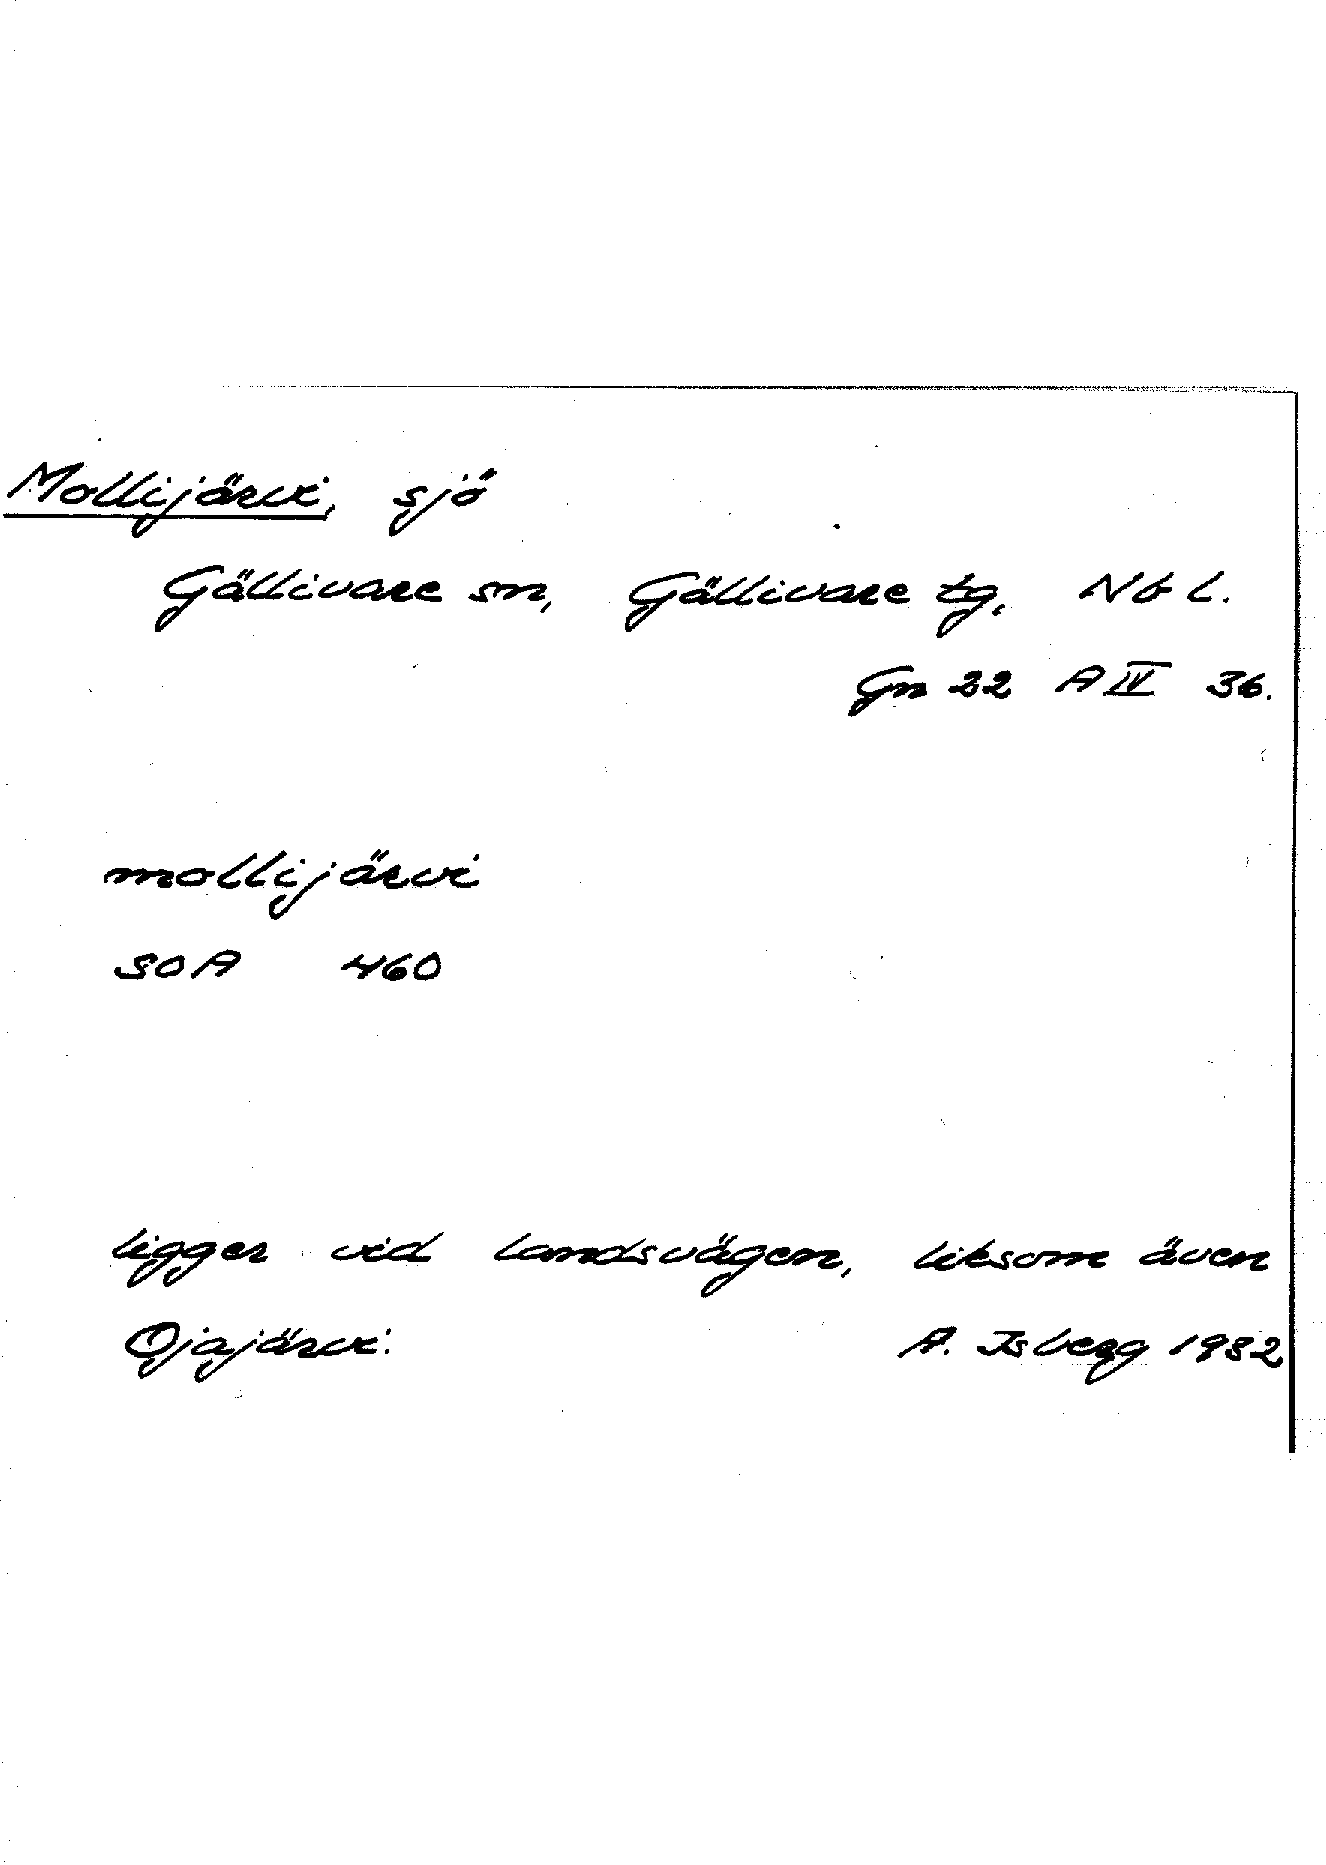 Mollijärvi, sjö
Gällivare sn, Gällivare tg, Nb L.
Gn 22 A IV 36.
mollijärvi
SOA 460
ligger vid landsvägen, liksom även
Ojajärvi. A. Isberg 1932